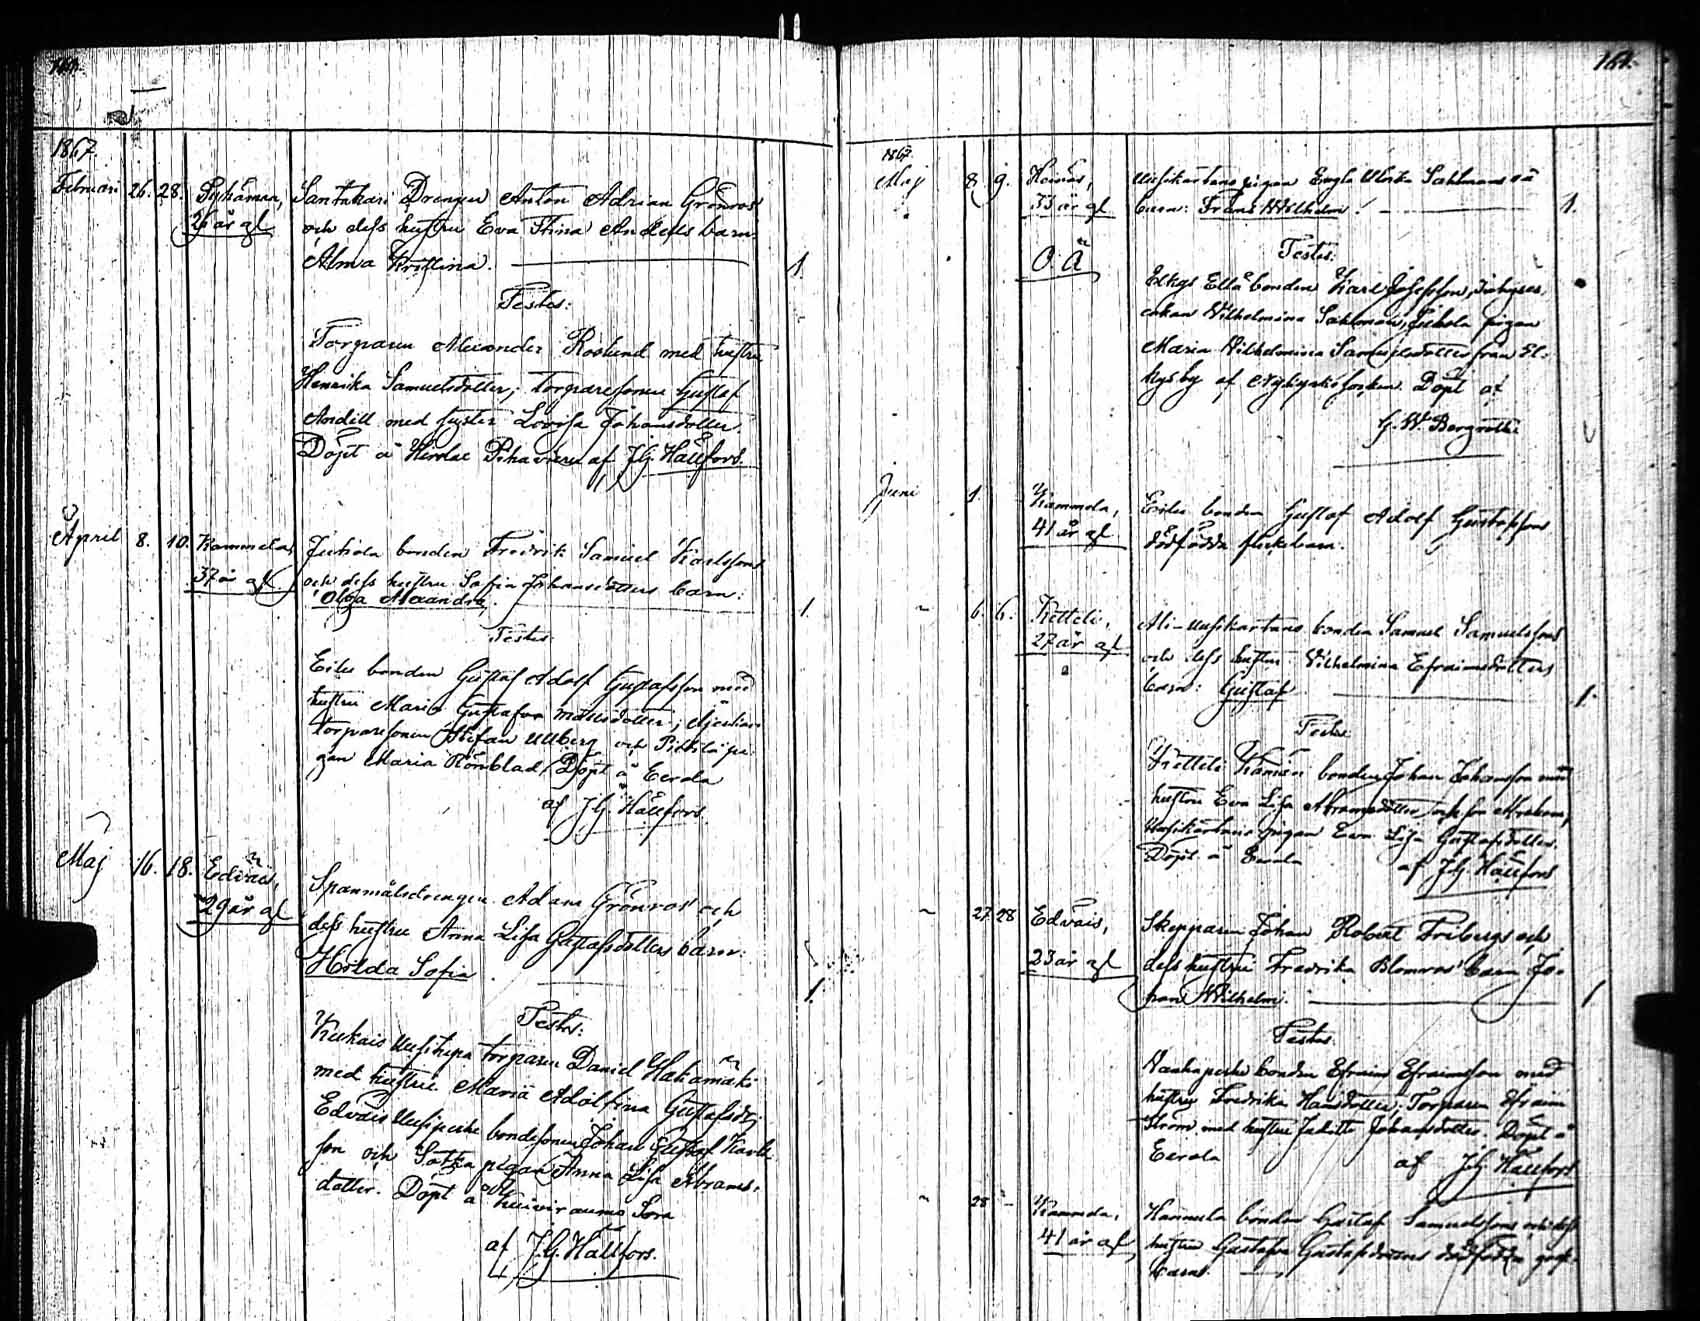 1867.
Februari 26. 28. Pyhämaa, Santakari Drengen Anton Adrian Grönros
26 år gl och dess hustru Eva Stina Anders barn:
Alma Kristina. 1.
Testes:
Torparen Alexander Roslund med hustru
Henrika Samuelsdotter; torparesonen Gustaf
Andell med syster Lovisa Johansdotter.
Döpt å af J.G. Hällfors.
April 8. 10. Kammela, Juhola bonden Fredrik Samuel Karlssons
37 år gl och dess hustru Sofia Johansdotters barn:
Olga Alexandra. 1.
Testes
Eiles bonden Gustaf Adolf Gustafsson med
hustru Maria Gustafva
torparesonen Stefan Ullberg och pi-
gan Maria Rönnblad. Döpt å Eerola
af J.G. Hällfors.
Maj 16. 18. Edväis, Spanmålsdrengen Adam Grönros och
29 år gl dess hustru Anna Lisa Gustafsdotters barn:
Hilda Sofia 1.
Testes:
Kukais Uusitupa torparen Daniel Hakamäki
med hustru Maria Adolfina Gustafsdr;
Edväis Uusiperhe bondesonen Johan Gustaf Karls-
son och pigan Anna Lisa Abrams-
dotter. Döpt å
af J.G. Hällfors.
164.
1867
Maj 8. 9. Heinäs, Uusikartano pigan Engla Ulrika Sahlmans oä
33 år gl barn: Frans Wilhelm. 1.
O. Ä
Testes:
Elkys Ellä bonden Karl Josefsson,
enkan Wilhelmina Sahlman, Juhola pigan
Maria Wilhelmina Samuelsdotter från El-
kysby af Nykyrko socken. Döpt af
G. W. Bergroth
Juni 1. Kammela, Eiles bonden Gustaf Adolf Gustafssons
41 år gl dödfödda flickebarn.
" 6. 6. Ketteli, Ali-Uusikartano bonden Samuel Samuelssons
27 år gl och dess hustru Wilhelmina Efraimsdotters
barn: Gustaf 1.
Testes
Ketteli bonden Johan Johansson med
hustru Eva Lisa Abramsdotter,
Uusikartano pigan Eva Lisa Gustafsdotter.
Döpt å Eerola af J.G. Hällfors
" 27 28 Edväis, Skepparen Johan Robert Fribergs och
23 år gl dess hustru Fredrika Blomros' barn Jo-
han Wilhelm. 1
Testes.
bonden Efraim Efraimsson med
hustru Fredrika Hansdotter; Torparen Efraim
Ström med hustru Judith Johansdotter. Döpt å
Eerola af J.G. Hällfors
" 28 " Kammela, Hannula bonden Gustaf Samuelssons och dess
41 år gl hustru Gustafva Gustafsdotters dödfödda goss-
barn.